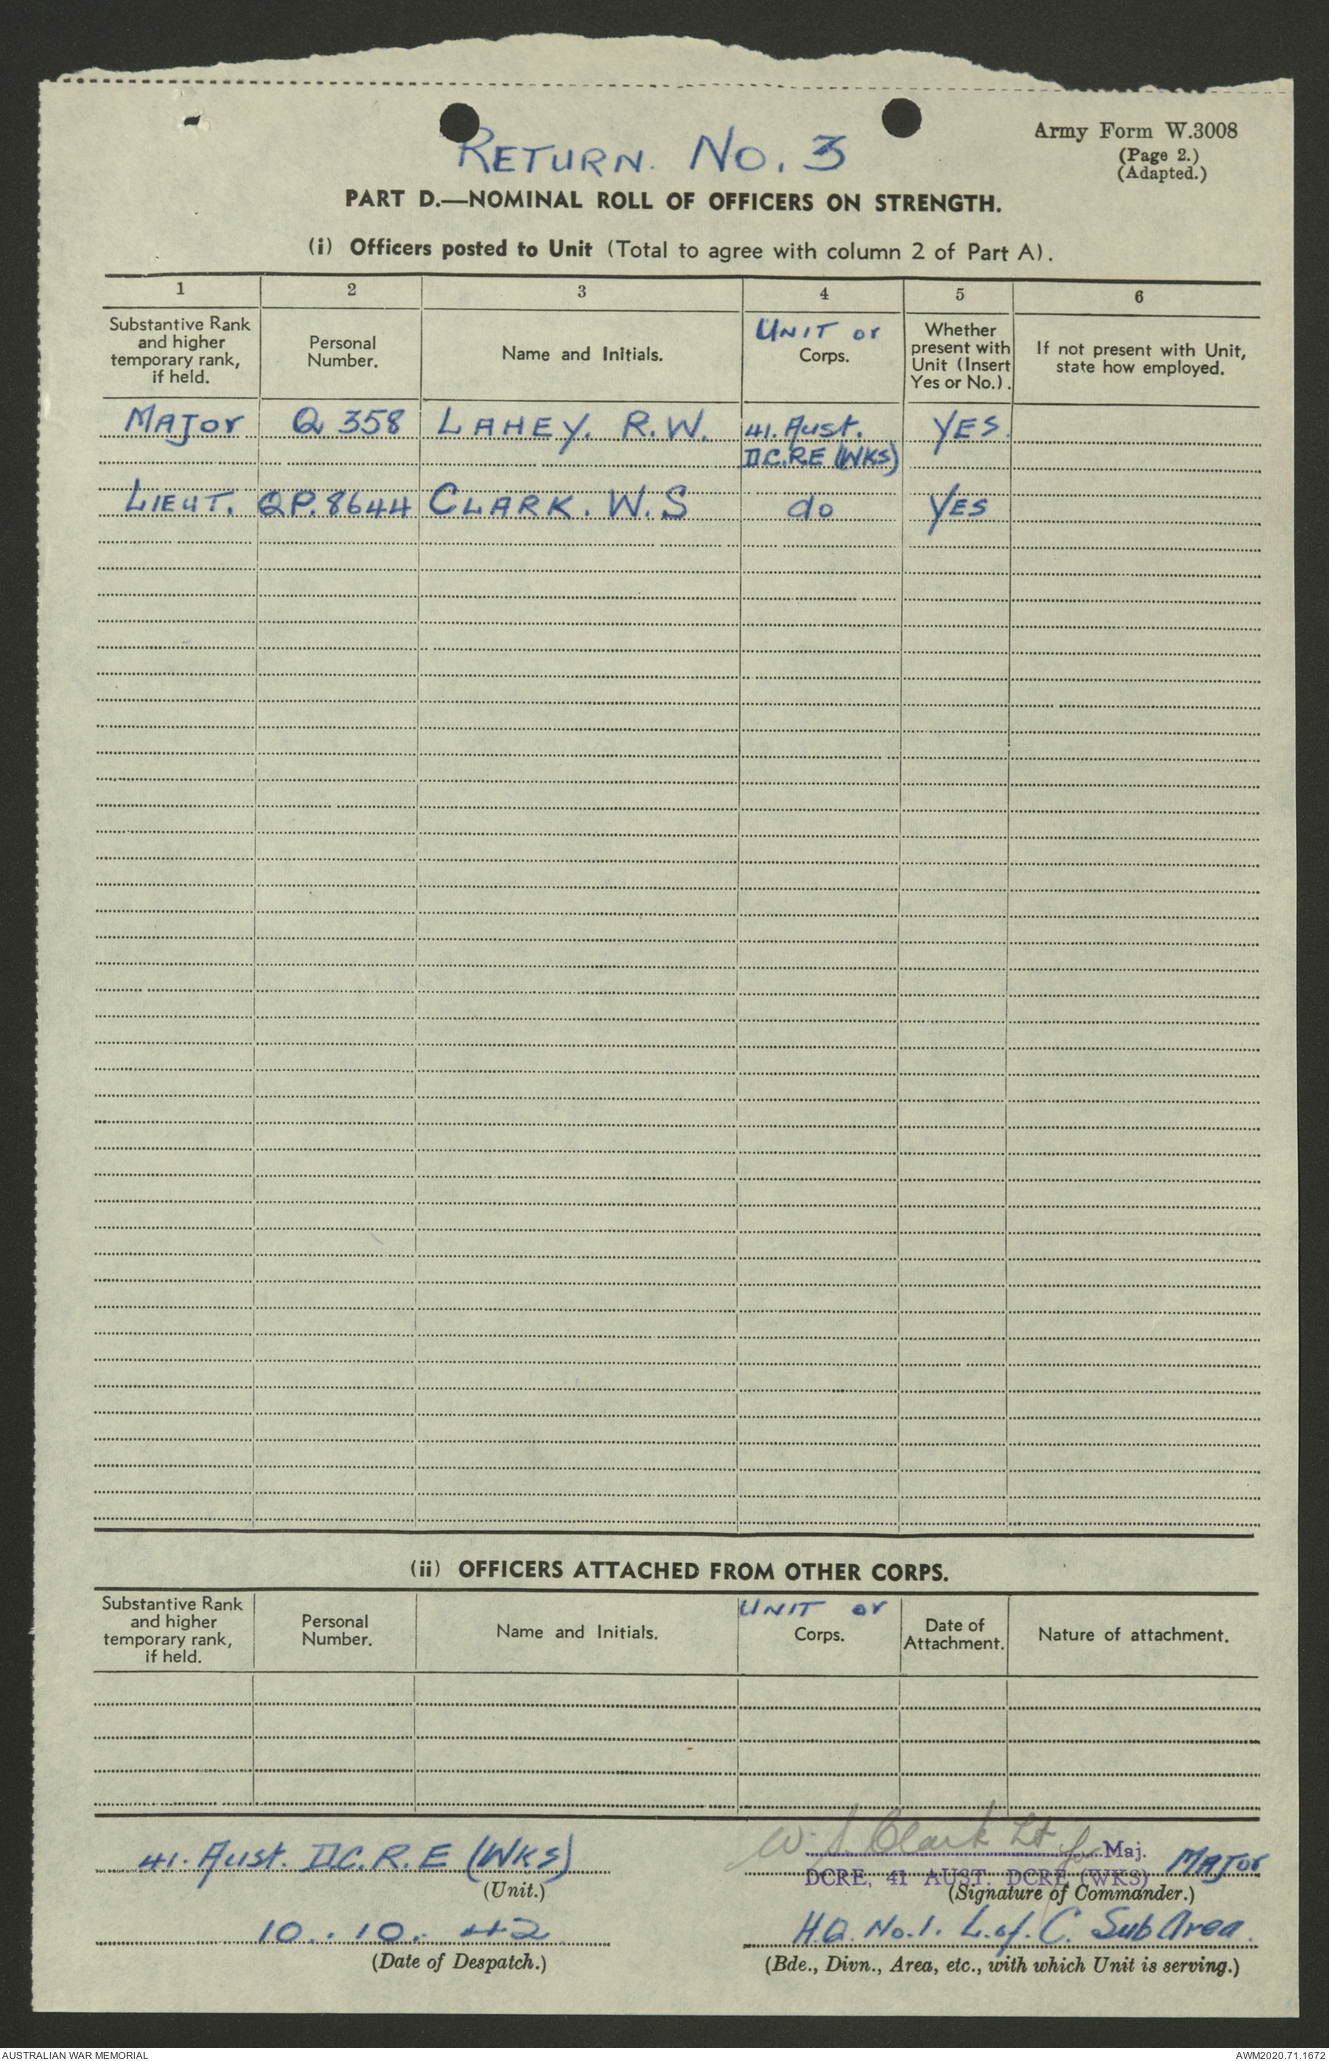 RETURN. No. 3
Army Form W.3008
(Page 2.)
(Adapted.)
PART D.—NOMINAL ROLL OF OFFICERS ON STRENGTH.
(i) Officers posted to Unit (Total to agree with column 2 of Part A).
1 2 3 4 5 6
Substantive Rank
and higher
temporary rank,
if held.
Personal
Number.
Name and Initials.
UNIT or
Corps.
Whether
present with
Unit (Insert
Yes or No.).
If not present with Unit,
state how employed.
MAJOR Q 358 LAHEY. R.W. 41. Aust. YES.
D.C.RE (WKS)
LIEUT. QP.8644 CLARK. W.S do YES
(ii) OFFICERS ATTACHED FROM OTHER CORPS.
Substantive Rank
and higher
temporary rank,
if held.
Personal
Number.
Name and Initials.
UNIT or
Corps.
Date of
Attachment.
Nature of attachment.
41. Aust. D.C.R.E (WKS)
(Unit.)
10..10. 42
(Date of Despatch.)
W. S. Clark Lt. for Maj. MAJOR
DCRE, 41 AUST. DCRE (WKS)
(Signature of Commander.)
H.Q. No.1. L. of. C. Sub Area.
(Bde., Divn., Area, etc., with which Unit is serving.)
AUSTRALIAN WAR MEMORIAL
AWM2020.71.1672